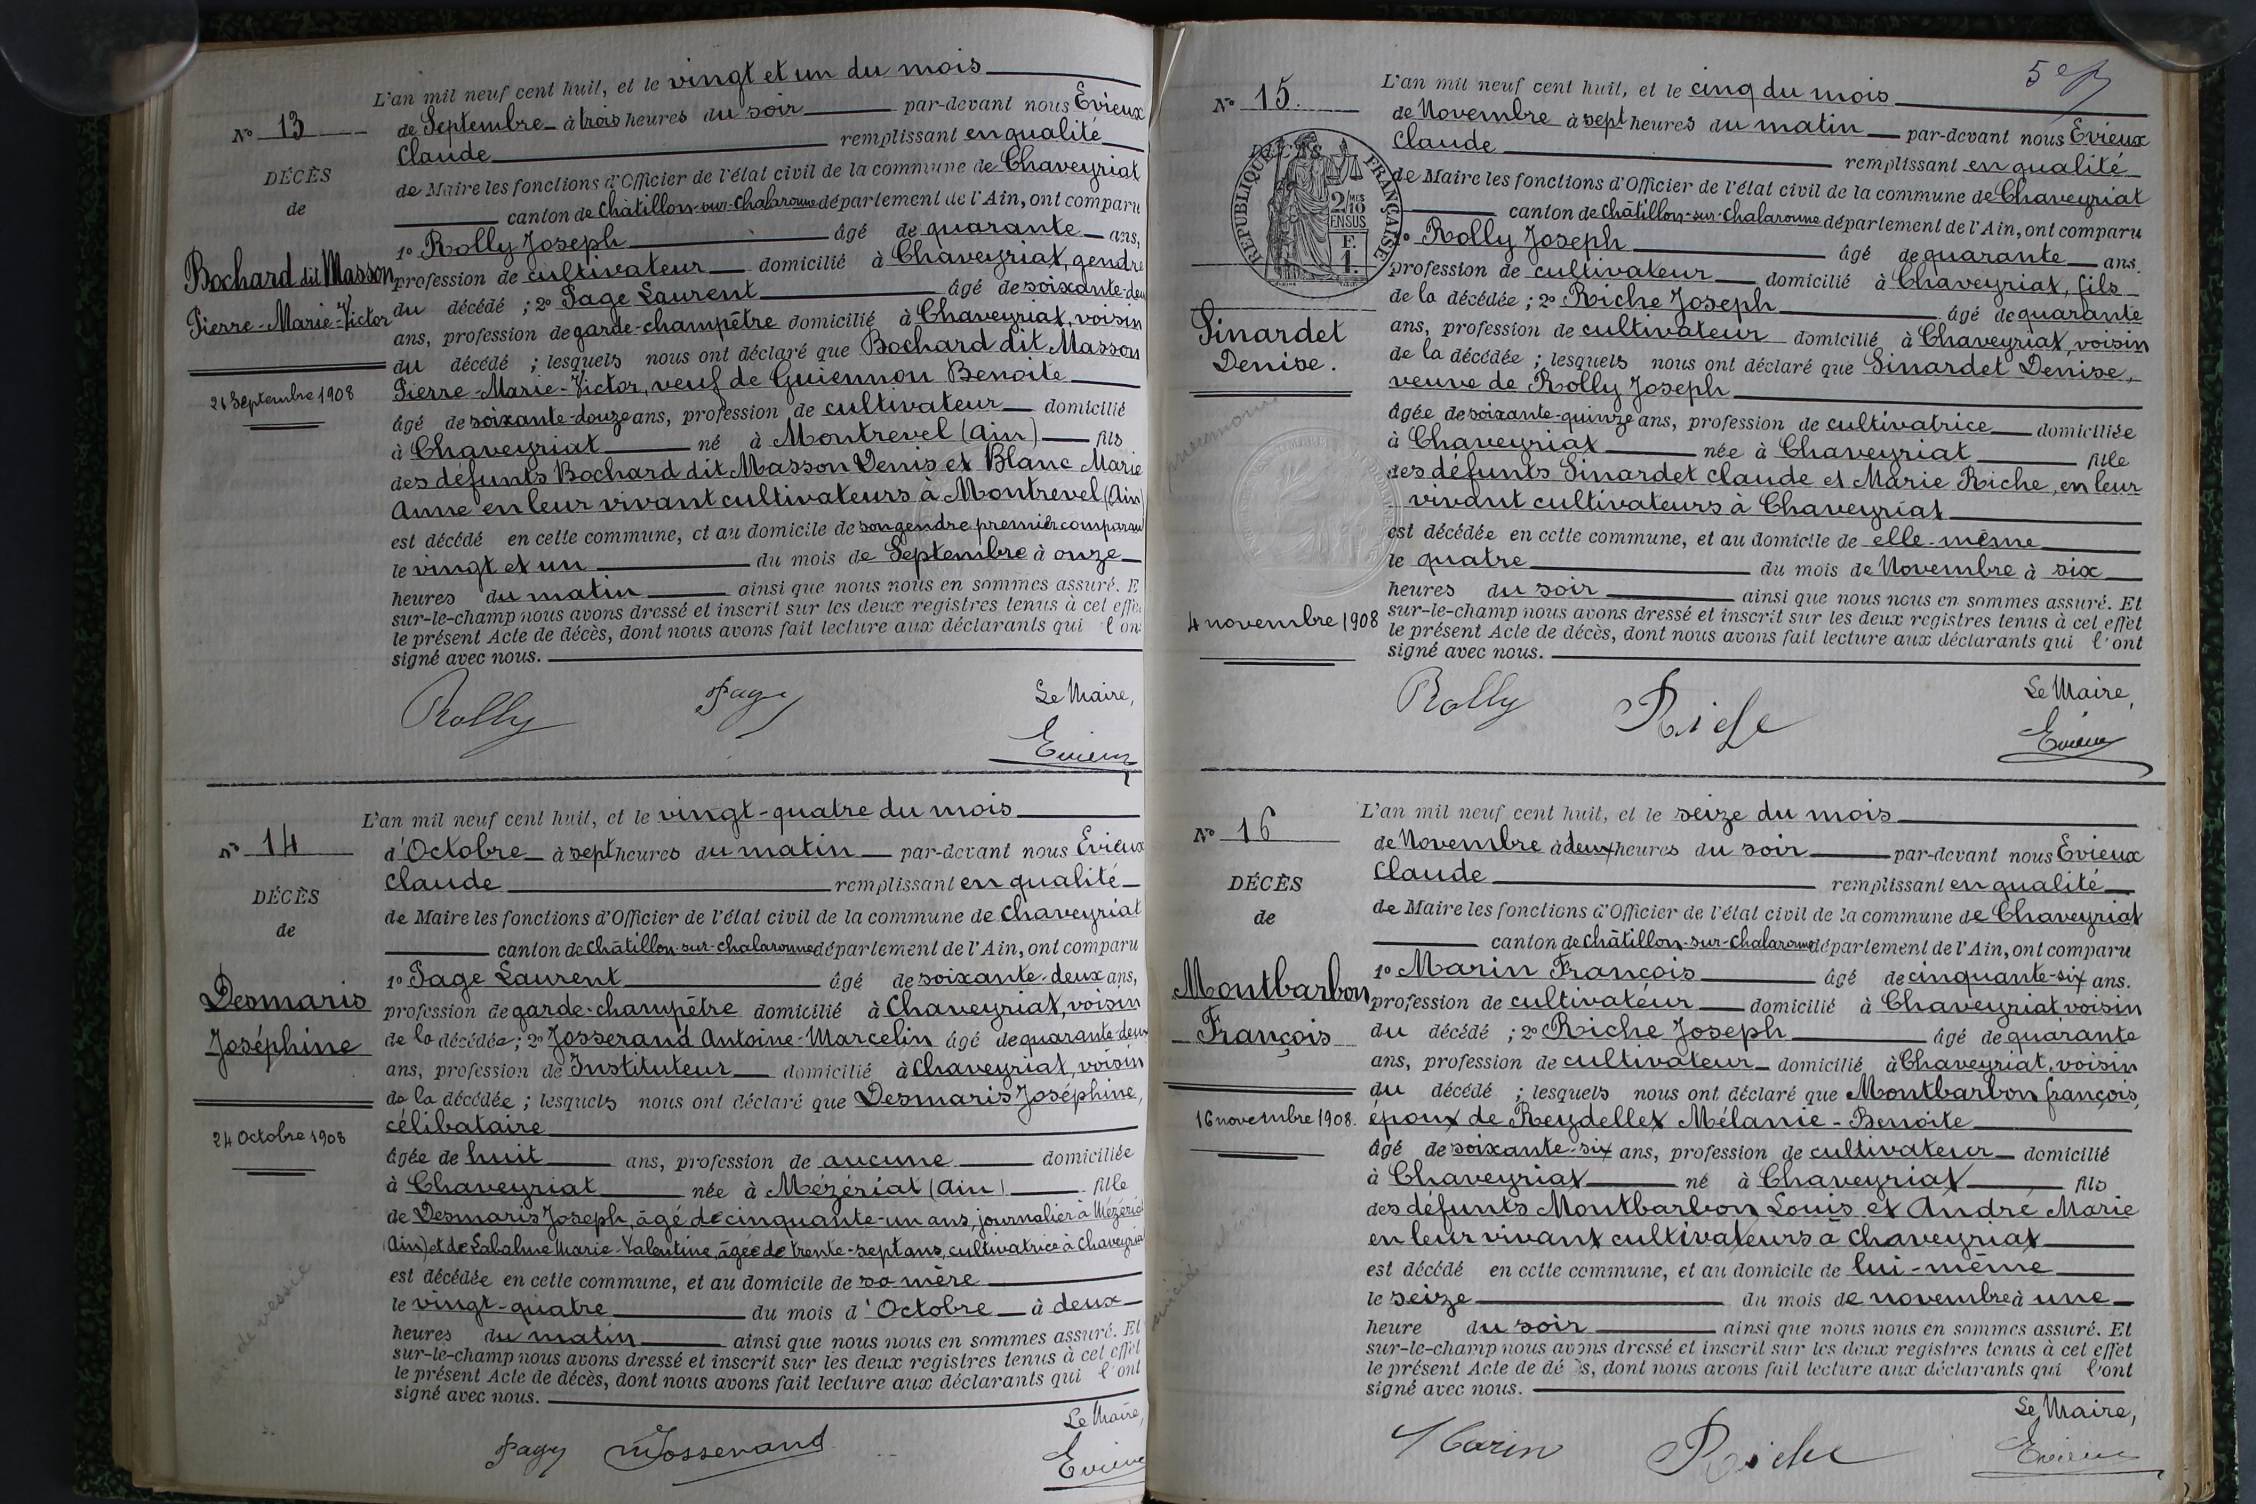 L'an mil neuf cent huit, et le vingt et un du mois
N° 13
de Septembre à trois heures du soir par-devant nous Evieux
Claude remplissant en qualité
DÉCÈS
de Maire les fonctions d'Officier de l'état civil de la commune de Chaveyriat
de
canton de Châtillon-sur-Chalaronne département de l'Ain, ont comparu
1° Rolly Joseph âgé de quarante ans,
Bochard dit Masson
profession de cultivateur domicilié à Chaveyriat, gendre
Pierre-Marie-Victor
du décédé ; 2° Page Laurent âgé de soixante-deux
ans, profession de garde-champêtre domicilié à Chaveyriat, voisin
du décédé ; lesquels nous ont déclaré que Bochard dit Masson
21 Septembre 1908
Pierre-Marie-Victor, veuf de Guiennon Benoite
âgé de soixante-douze ans, profession de cultivateur domicilié
à Chaveyriat né à Montrevel (Ain) fils
des défunts Bochard dit Masson Denis et Blanc Marie
Anne en leur vivant cultivateurs à Montrevel (Ain)
est décédé en cette commune, et au domicile de son gendre premier comparant
le vingt et un du mois de Septembre à onze
heures du matin ainsi que nous nous en sommes assuré. E
sur-le-champ nous avons dressé et inscrit sur les deux registres tenus à cet effet
le présent Acte de décès, dont nous avons fait lecture aux déclarants qui l'on
signé avec nous.
Rolly Page Le Maire,
Evieux
L'an mil neuf cent huit, et le vingt-quatre du mois
N° 14
d'Octobre à sept heures du matin par-devant nous Evieux
Claude remplissant en qualité
DÉCÈS
de Maire les fonctions d'Officier de l'état civil de la commune de Chaveyriat
de
canton de Châtillon-sur-Chalaronne département de l'Ain, ont comparu
1° Page Laurent âgé de soixante-deux ans,
Desmaris
profession de garde-champêtre domicilié à Chaveyriat, voisin
Joséphine
de la décédée ; 2° Josserand Antoine-Marcelin âgé de quarante-deux
ans, profession de Instituteur domicilié à Chaveyriat, voisin
de la décédée ; lesquels nous ont déclaré que Desmaris Joséphine,
24 Octobre 1908
célibataire
âgée de huit ans, profession de aucune domiciliée
à Chaveyriat née à Mézériat (Ain) fille
de Desmaris Joseph, âgé de cinquante-un ans, journalier à Mézériat
(Ain) et de Labalme Marie-Valentine, âgée de trente-sept ans, cultivatrice à Chaveyriat
est décédée en cette commune, et au domicile de sa mère
le vingt-quatre du mois d'Octobre à deux
heures du matin ainsi que nous nous en sommes assuré. Et
sur-le-champ nous avons dressé et inscrit sur les deux registres tenus à cet effet
le présent Acte de décès, dont nous avons fait lecture aux déclarants qui l'ont
signé avec nous.
de vessie
Page Josserand Le Maire,
Evieux
L'an mil neuf cent huit, et le cinq du mois
N° 15.
de Novembre à sept heures du matin par-devant nous Evieux
Claude remplissant en qualité
RÉPUBLIQUE FRANÇAISE
2/10MES
EN SUS
F. 1.
de Maire les fonctions d'Officier de l'état civil de la commune de Chaveyriat
canton de Châtillon-sur-Chalaronne département de l'Ain, ont comparu
1° Rolly Joseph âgé de quarante ans.
profession de cultivateur domicilié à Chaveyriat, fils
de la décédée ; 2° Riche Joseph âgé de quarante
Sinardet
Denise.
ans, profession de cultivateur domicilié à Chaveyriat, voisin
de la décédée ; lesquels nous ont déclaré que Sinardet Denise,
veuve de Rolly Joseph
âgée de soixante-quinze ans, profession de cultivatrice domiciliée
à Chaveyriat née à Chaveyriat fille
des défunts Sinardet Claude et Marie Riche, en leur
vivant cultivateurs à Chaveyriat
est décédée en cette commune, et au domicile de elle-même
le quatre du mois de Novembre à six
heures du soir ainsi que nous nous en sommes assuré. Et
4 novembre 1908
sur-le-champ nous avons dressé et inscrit sur les deux registres tenus à cet effet
le présent Acte de décès, dont nous avons fait lecture aux déclarants qui l'ont
signé avec nous.
Rolly Riche Le Maire,
Evieux
L'an mil neuf cent huit, et le seize du mois
N° 16
de Novembre à deux heures du soir par-devant nous Evieux
Claude remplissant en qualité
DÉCÈS
de Maire les fonctions d'Officier de l'état civil de la commune de Chaveyriat
de
canton de Châtillon-sur-Chalaronne département de l'Ain, ont comparu
1° Marin François âgé de cinquante-six ans.
Montbarbon
profession de cultivateur domicilié à Chaveyriat voisin
François
du décédé ; 2° Riche Joseph âgé de quarante
ans, profession de cultivateur domicilié à Chaveyriat, voisin
du décédé ; lesquels nous ont déclaré que Montbarbon françois,
16 novembre 1908.
époux de Reydellet Mélanie-Benoite
âgé de soixante-six ans, profession de cultivateur domicilié
à Chaveyriat né à Chaveyriat fils
des défunts Montbarbon Louis et André Marie
en leur vivant cultivateurs à Chaveyriat
est décédé en cette commune, et au domicile de lui-même
le seize du mois de novembre à une
heure du soir ainsi que nous nous en sommes assuré. Et
sur-le-champ nous avons dressé et inscrit sur les deux registres tenus à cet effet
le présent Acte de dé s, dont nous avons fait lecture aux déclarants qui l'ont
signé avec nous.
Marin Riche Le Maire,
Evieux